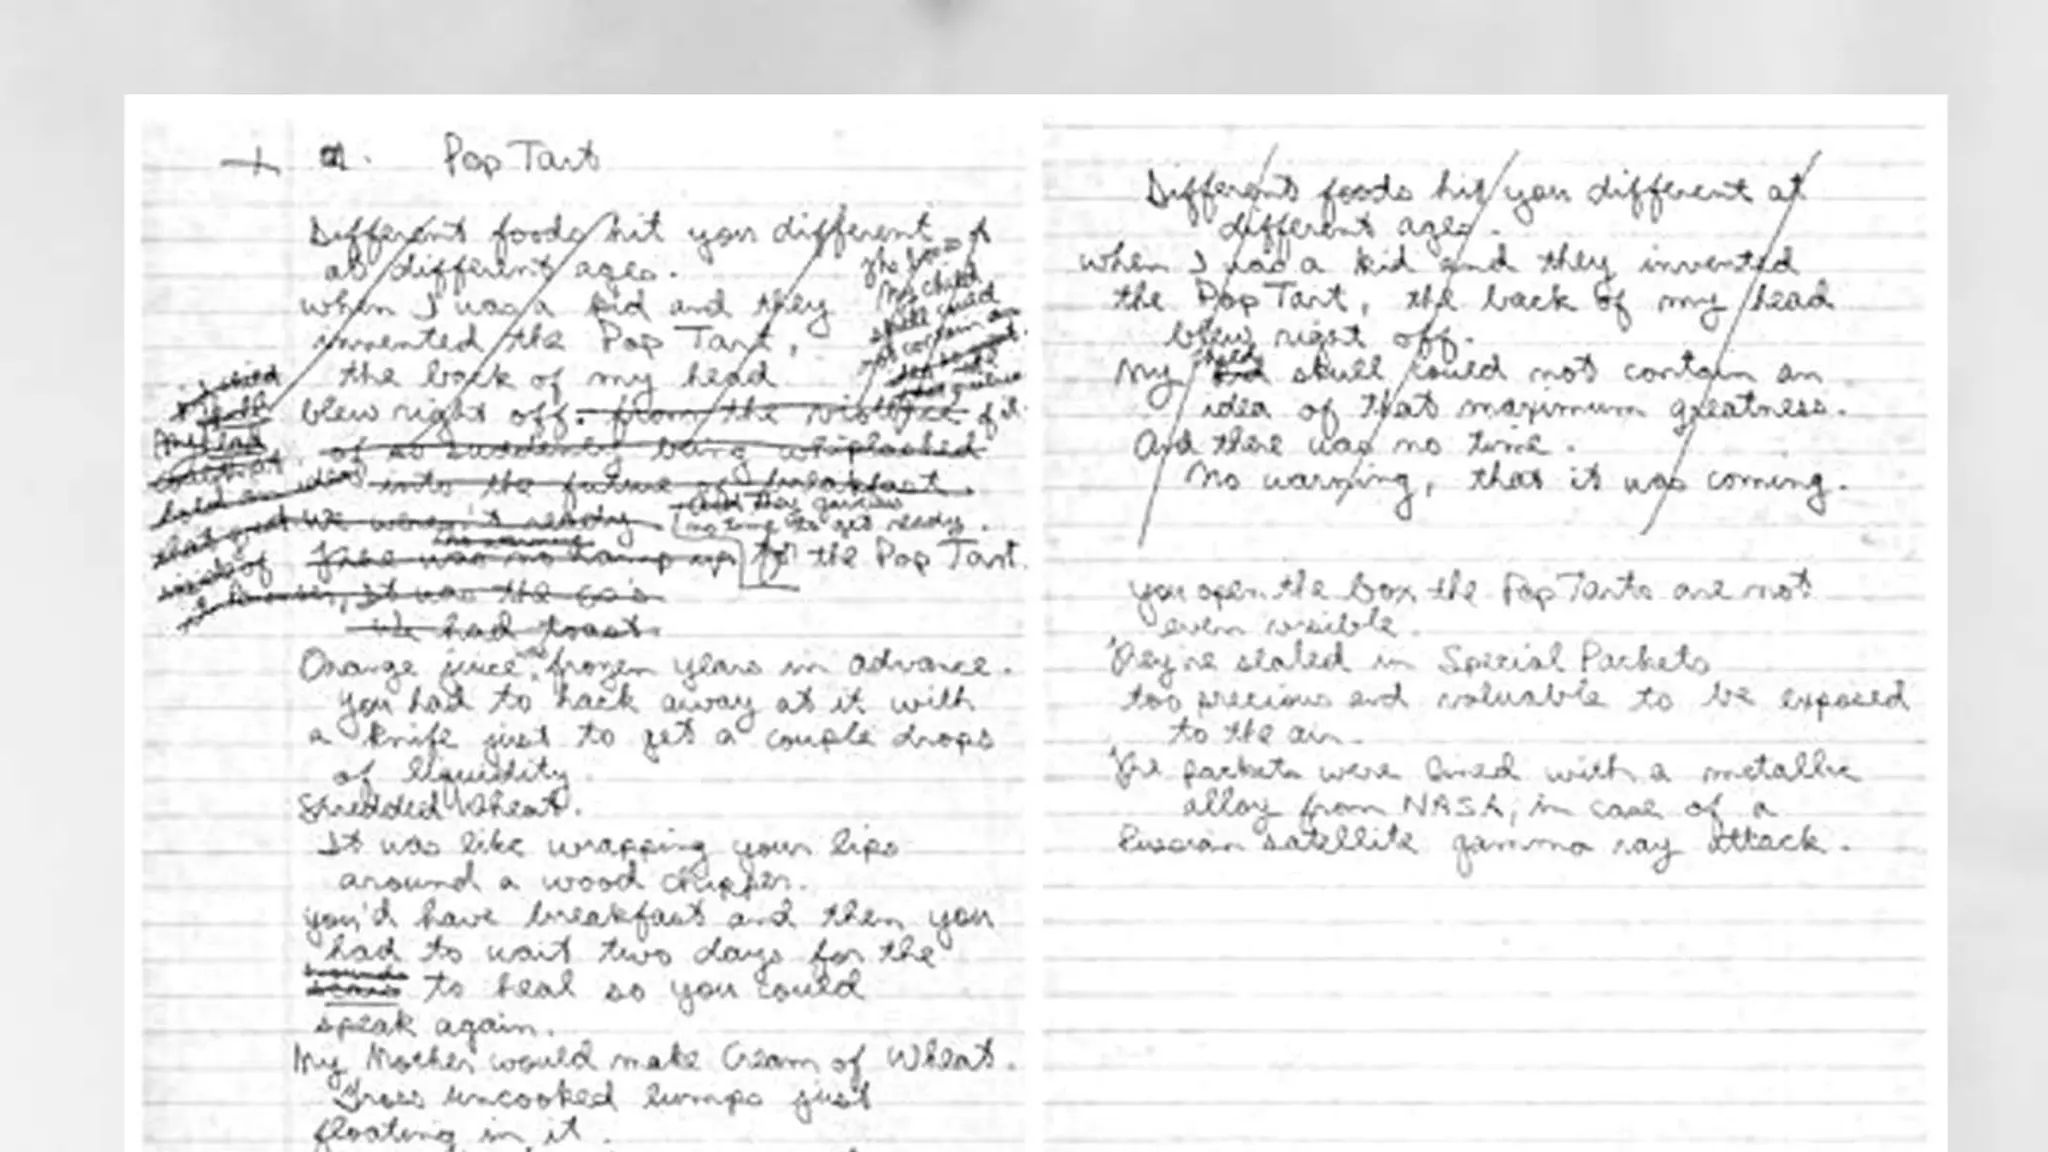 Pop Tart
Different foods hit you different
at different ages.
when I was a kid and they
invented the Pop Tart,
the back of my head
blew right off. from the violence of it
of so suddenly being whiplashed
into the future of breakfast.
We weren't ready
and they gave us
no time to get ready.
There was no ramp up for the Pop Tart.
It was the 60's
we had toast.
Orange juice was frozen years in advance.
you had to hack away at it with
a knife just to get a couple drops
of liquidity.
Shredded Wheat.
It was like wrapping your lips
around a wood chipper.
you'd have breakfast and then you
had to wait two days for the
to heal so you could
speak again.
My Mother would make Cream of Wheat.
Gross uncooked lumps just
floating in it.
Different foods hit you different at
different ages.
when I was a kid and they invented
the Pop Tart, the back of my head
blew right off.
My skull could not contain an
idea of that maximum greatness.
And there was no time.
No warning, that it was coming.
you open the box the Pop Tarts are not
even visible.
They're sealed in Special Packets
too precious and valuable to be exposed
to the air.
The packets were lined with a metallic
alloy from NASA, in case of a
Russian satellite gamma ray attack.